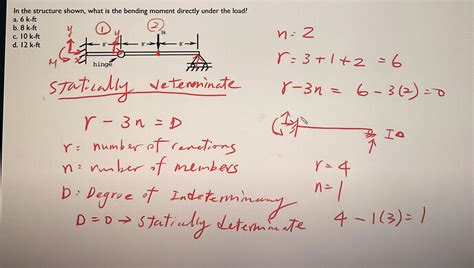 In the structure shown, what is the bending moment directly under the load?
a. 6 k-ft
b. 8 k-ft
c. 10 k-ft
d. 12 k-ft
1
2
y
M
x
y
hinge
statically determinate
r - 3n = D
r = number of reactions
n = number of members
D = Degree of Indeterminancy
D = 0 → statically determinate
n = 2
r = 3 + 1 + 2 = 6
r - 3n = 6 - 3(2) = 0
r = 4
n = 1
4 - 1(3) = 1